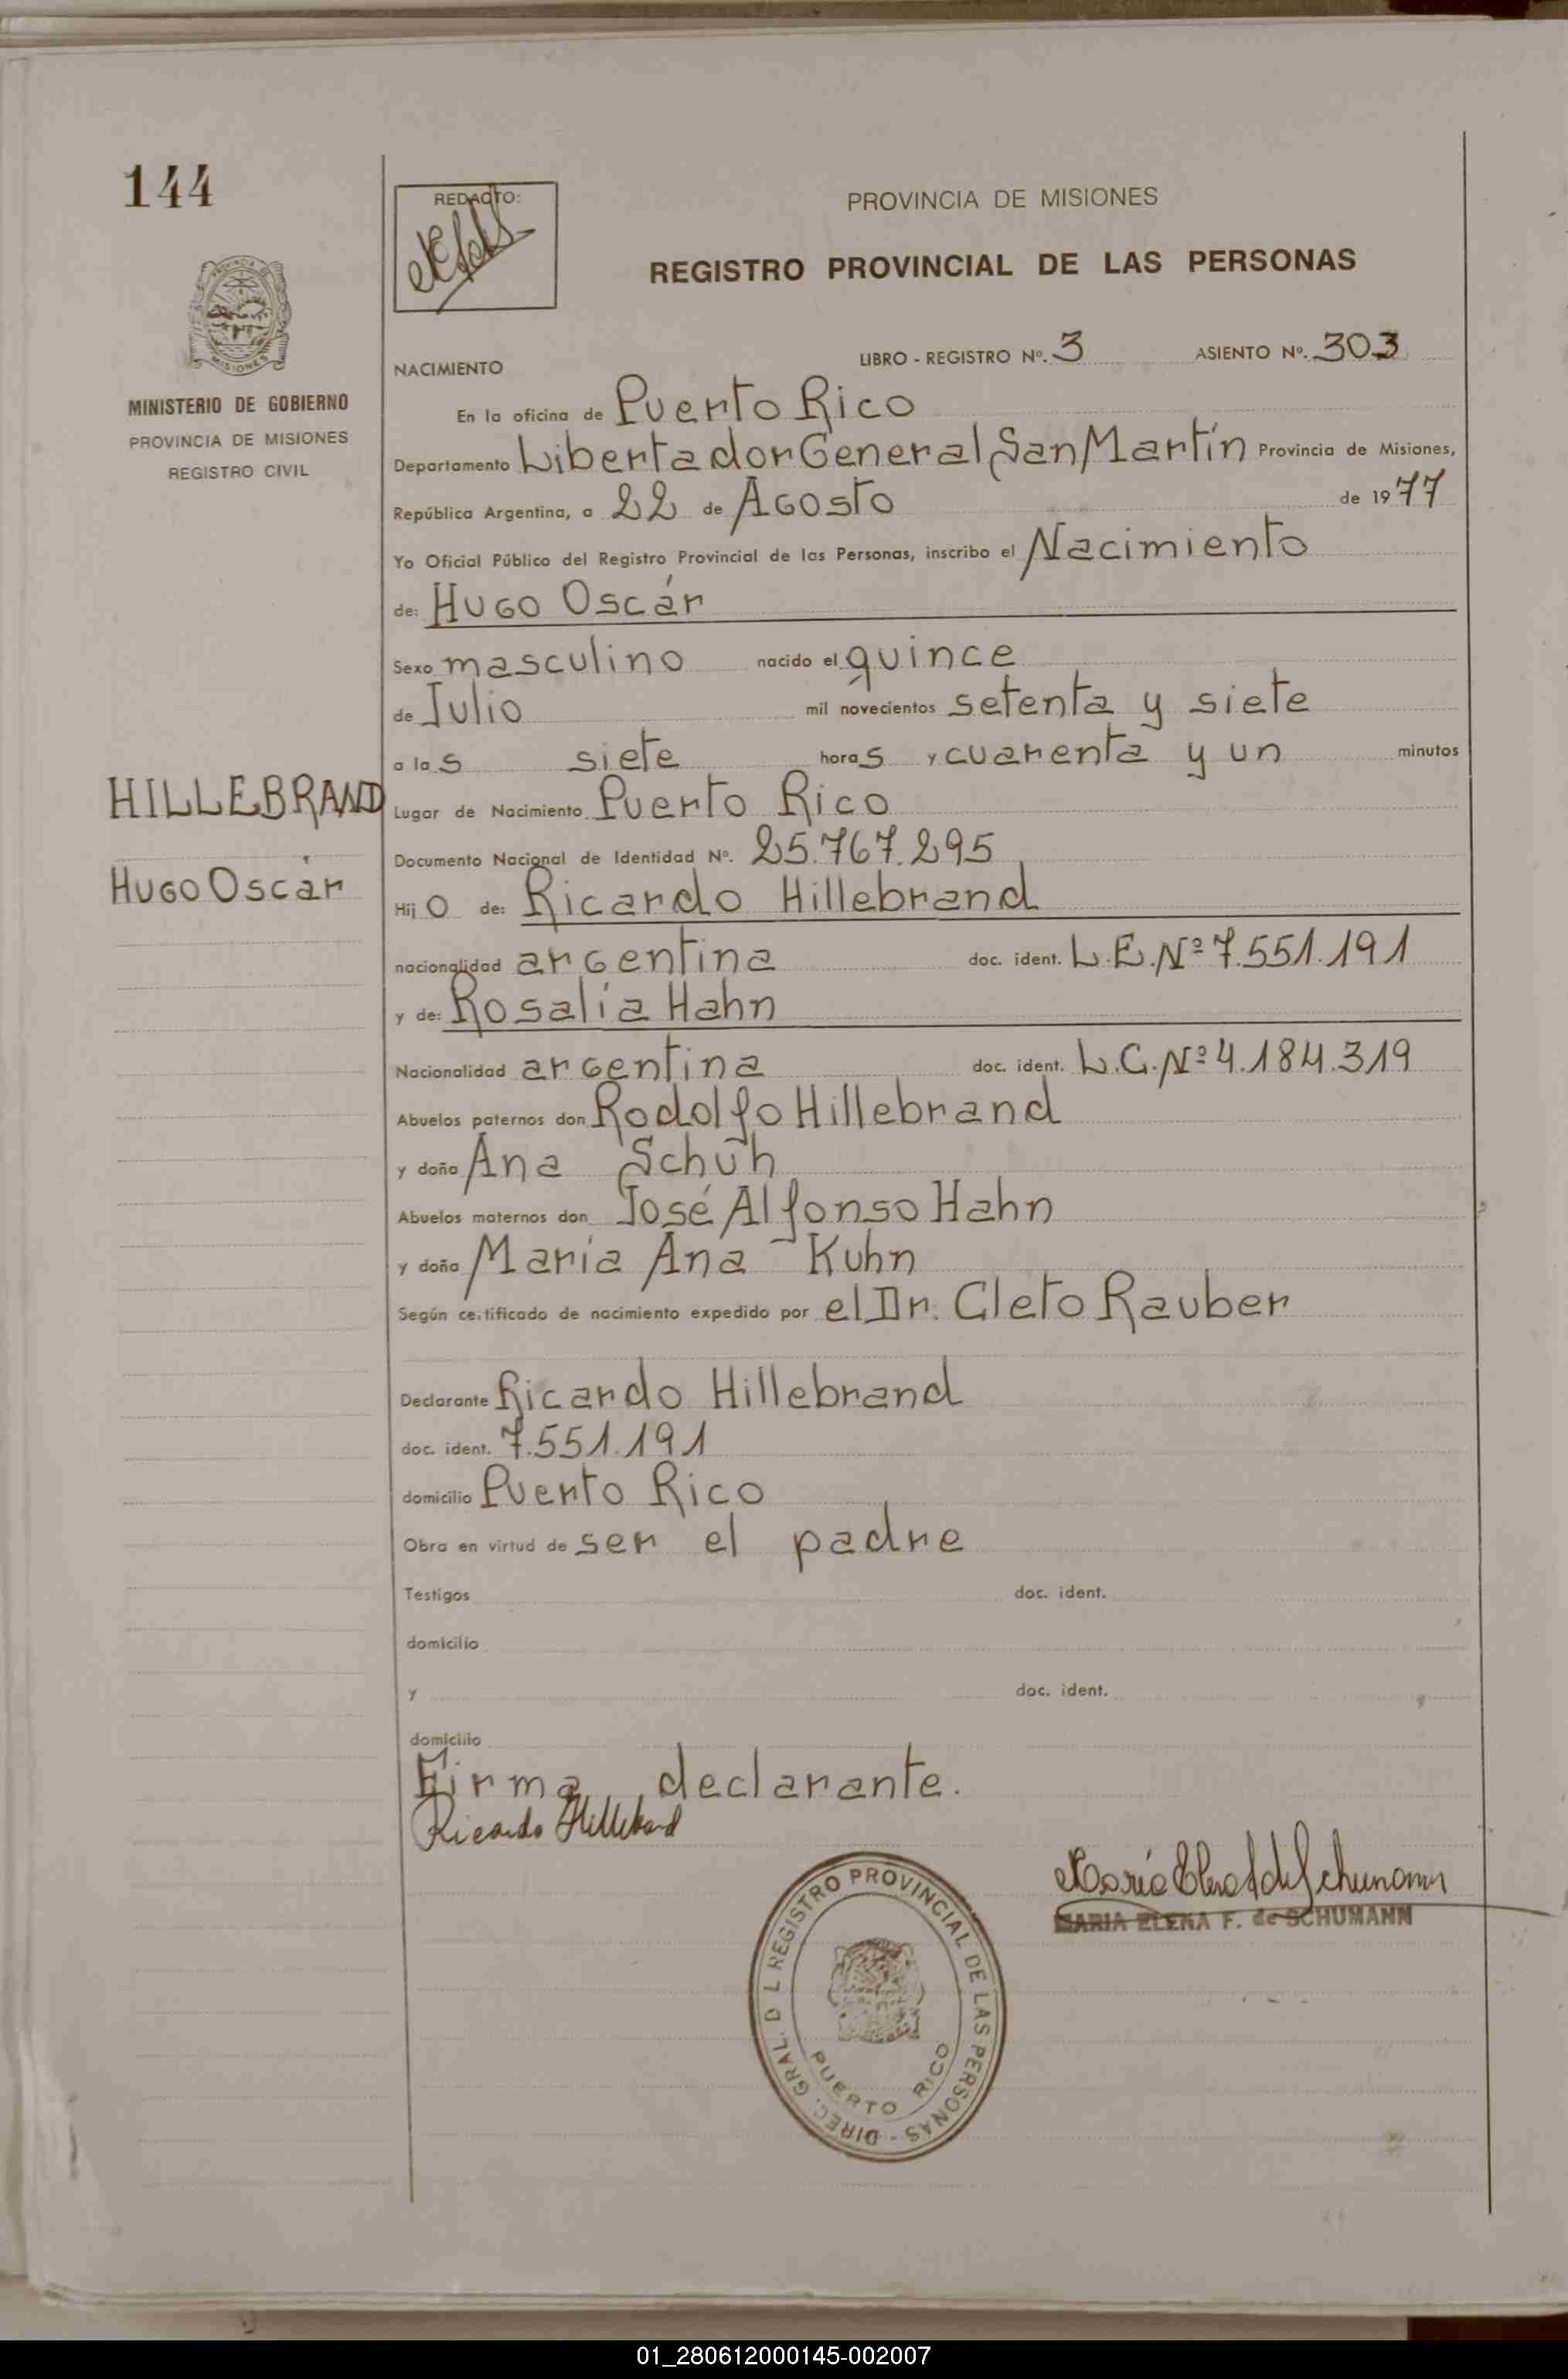 144
REDACTO:
PROVINCIA DE MISIONES
REGISTRO PROVINCIAL DE LAS PERSONAS
MINISTERIO DE GOBIERNO
PROVINCIA DE MISIONES
REGISTRO CIVIL
NACIMIENTO LIBRO - REGISTRO Nº. 3 ASIENTO Nº. 303
En la oficina de Puerto Rico
Departamento Libertador General San Martín Provincia de Misiones,
República Argentina, a 22 de Agosto de 1977
Yo Oficial Público del Registro Provincial de las Personas, inscribo el Nacimiento
de: Hugo Oscár
Sexo masculino nacido el quince
de Julio mil novecientos setenta y siete
a las siete horas y cuarenta y un minutos
HILLEBRAND
Hugo Oscár
Lugar de Nacimiento Puerto Rico
Documento Nacional de Identidad Nº. 25.767.295
Hijo de: Ricardo Hillebrand
nacionalidad argentina doc. ident. L.E.Nº 7.551.191
y de: Rosalía Hahn
Nacionalidad argentina doc. ident. L.C.Nº 4.184.319
Abuelos paternos don Rodolfo Hillebrand
y doña Ana Schuh
Abuelos maternos don José Alfonso Hahn
y doña María Ana Kuhn
Según certificado de nacimiento expedido por el Dr. Cleto Rauber
Declarante Ricardo Hillebrand
doc. ident. 7.551.191
domicilio Puerto Rico
Obra en virtud de ser el padre
Testigos doc. ident.
domicilio
y doc. ident.
domicilio
Firma declarante.
Ricardo Hillebrand
MARIA ELENA F. de SCHUMANN
DIREC. GRAL. D L REGISTRO PROVINCIAL DE LAS PERSONAS -
PUERTO RICO
01_280612000145-002007